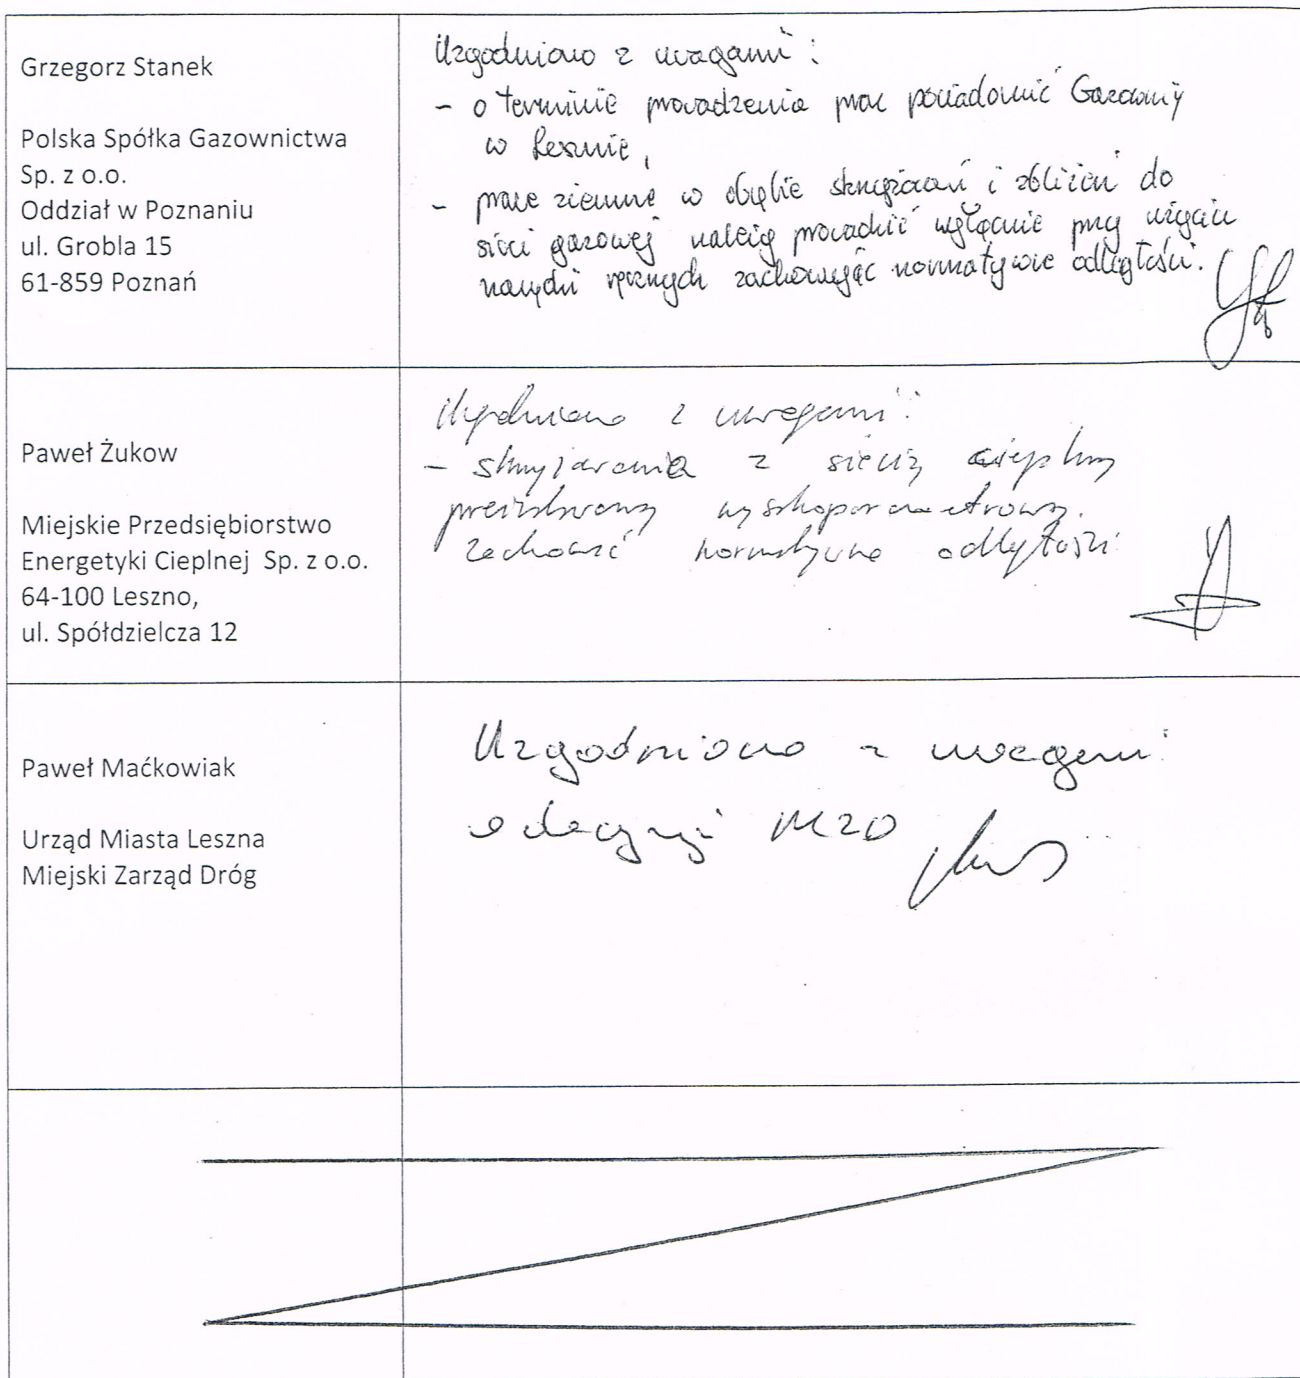 Grzegorz Stanek
Polska Spółka Gazownictwa
Sp. z o.o.
Oddział w Poznaniu
ul. Grobla 15
61-859 Poznań
Uzgodniono z uwagami:
- o terminie prowadzenia prac powiadomić Gazownię
w Lesznie,
- prace ziemne w obrębie skrzyżowań i zbliżeń do
sieci gazowej należy prowadzić wyłącznie przy użyciu
narzędzi ręcznych zachowując normatywne odległości.
Paweł Żukow
Miejskie Przedsiębiorstwo
Energetyki Cieplnej Sp. z o.o.
64-100 Leszno,
ul. Spółdzielcza 12
Uzgodniono z uwagami:
- skrzyżowania z siecią cieplną
wysokoparametrową.
Zachować normatywne odległości
Paweł Maćkowiak
Urząd Miasta Leszna
Miejski Zarząd Dróg
Uzgodniono z uwagami
decyzji MZD